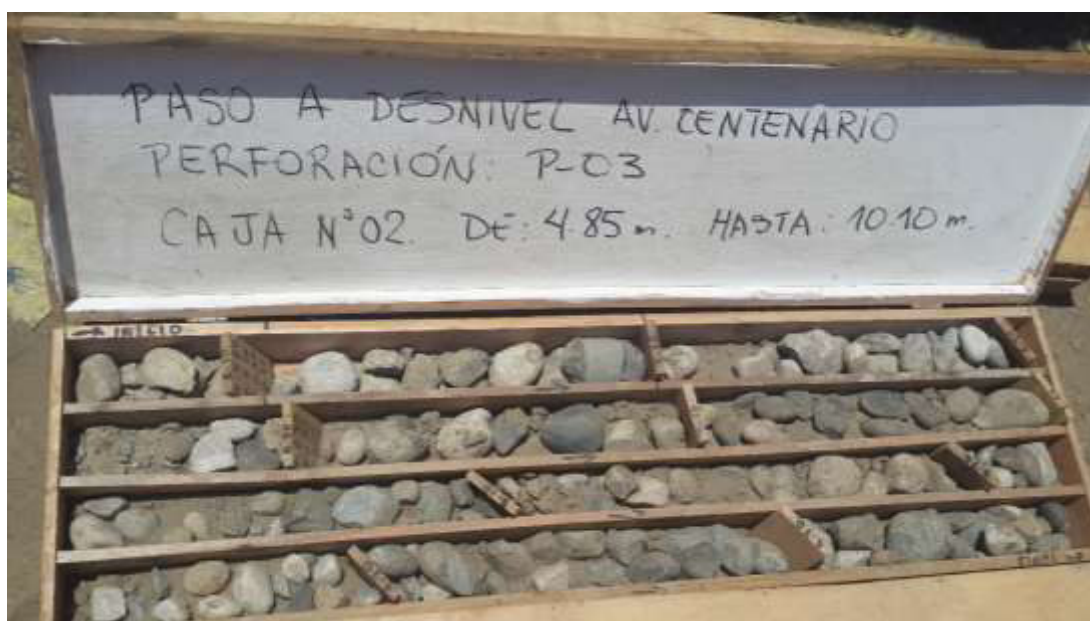 PASO A DESNIVEL AV. CENTENARIO
PERFORACIÓN: P-03
CAJA N°02. DE: 4.85 m. HASTA: 10.10 m.
INICIO